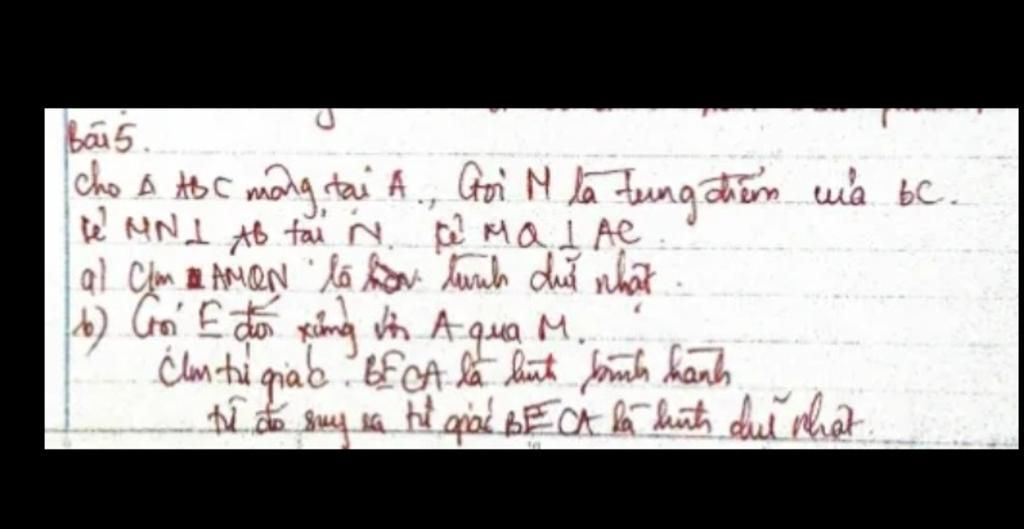 Bài 5.
Cho Δ ABC vuông tại A., Gọi M là trung điểm của BC.
Kẻ MN⊥ AB tại N. Kẻ MQ ⊥ AC
a) Cm AMQN là hình chữ nhật.
b) Gọi E đối xứng với A qua M.
Cm tứ giác BECA là hình bình hành
từ đó suy ra tứ giác BECA là hình chữ nhật.